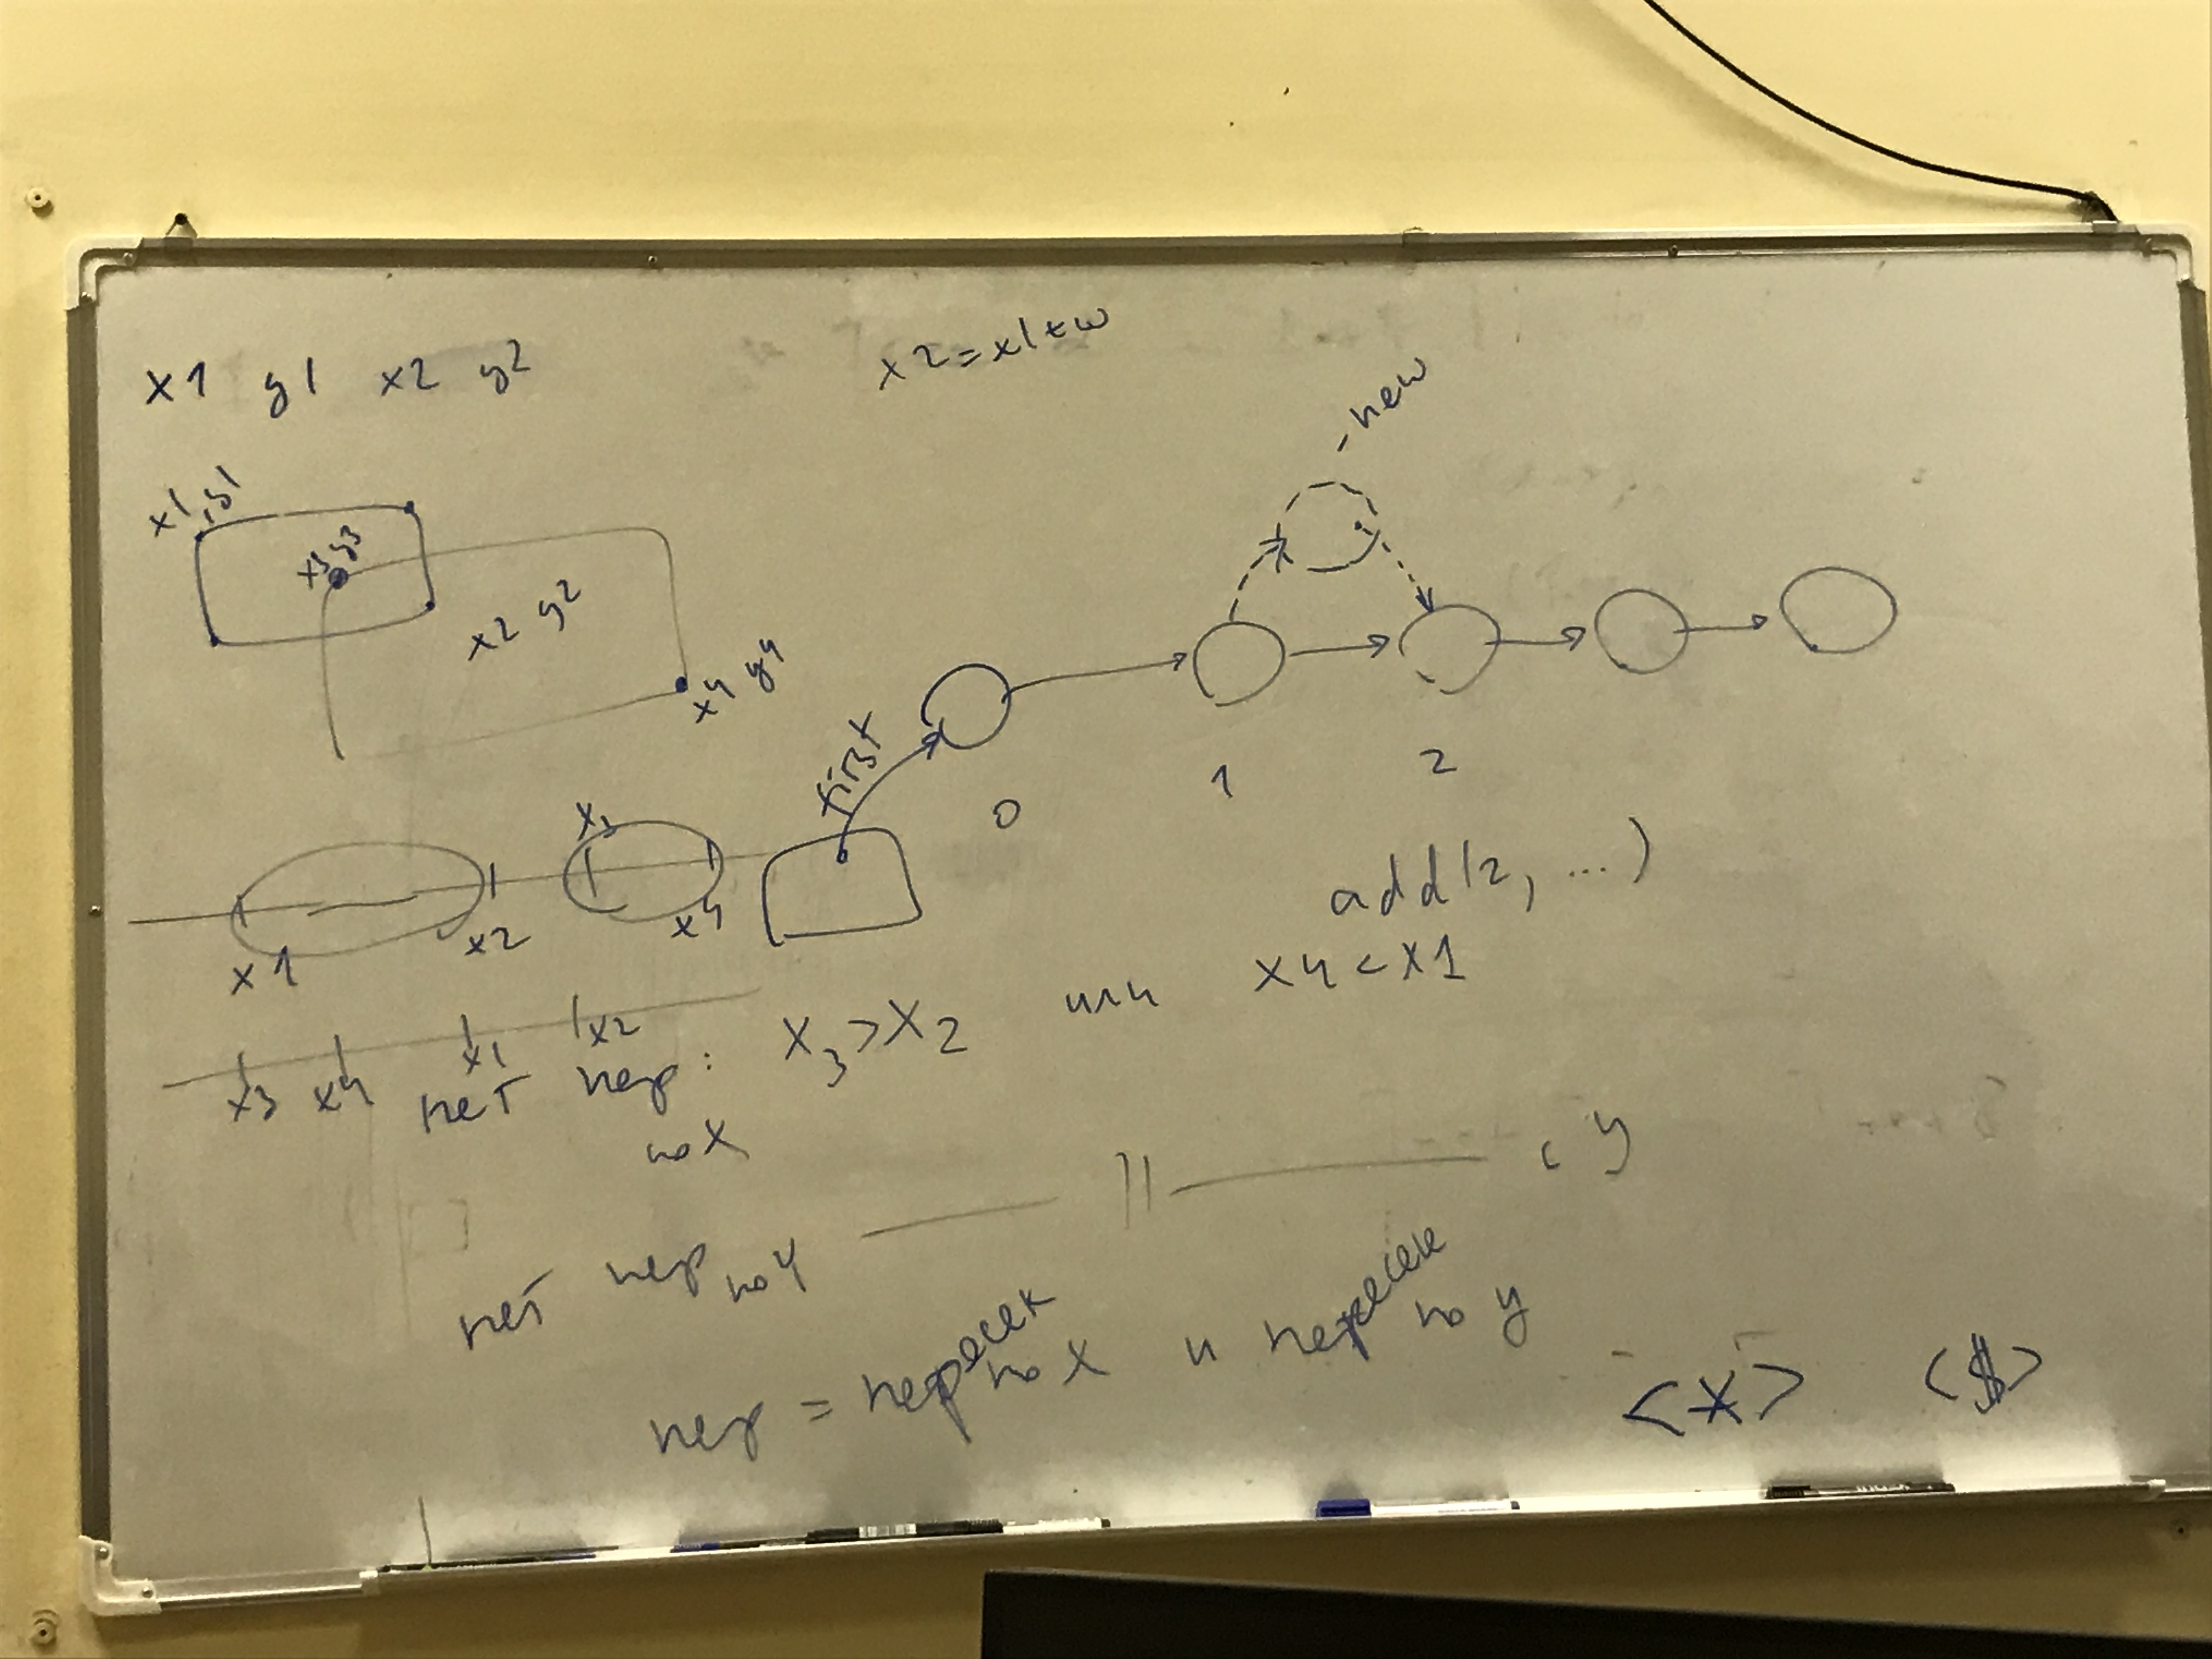 x1 y1 x2 y2
x2=x1+w
-new
x1,y1
x3y3
x2 y2
x4 y4
first
0
1
2
x3
x1
x2
x4
add(2, ...)
x1
x2
x3 x4
нет пер: x3>x2 или x4<x1
по x
нет пер по y —— || —— с y
пер = пересек по x и пересек по y
<x> <$>